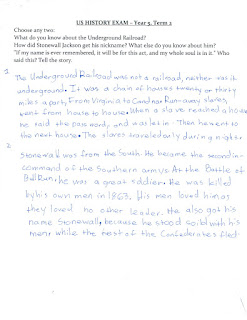 US HISTORY EXAM - Year 5, Term 2
Choose any two:
What do you know about the Underground Railroad?
How did Stonewall Jackson get his nickname? What else do you know about him?
"If my name is ever remembered, it will be for this act, and my whole soul is in it." Who
said this? Tell the story.
1 The Underground Railroad was not a railroad, neither was it
underground. It was a chain of houses twenty or thirty
miles a part, from Virginia to Candna. Run-away slaves,
went from house to house. When a slave reached a house
he said the pass word, and was let in. Then he went to
the next house. The slaves traveled only during night.
2
Stonewall was from the South. He became the second in
command of the Southern army. At the Battle of
Bull Run. he was a great soldier. He was killed
by his own men in 1863. His men loved him as
they loved no other leader. He also got his
name Stonewall, because he stood solid with his
men while the rest of the Confederates fled.